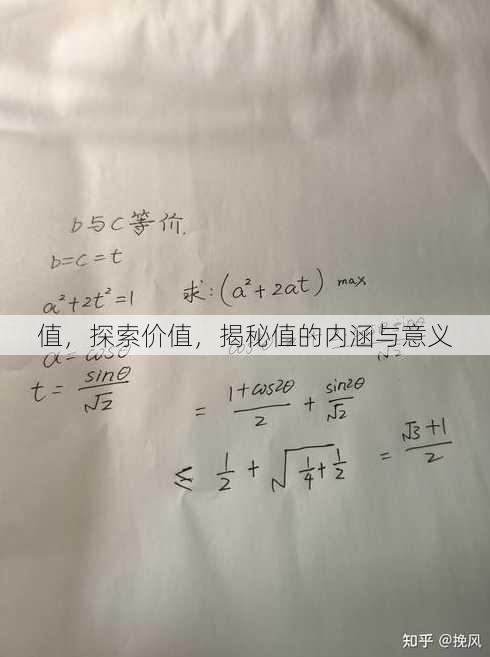 b与c等价.
b=c=t
a²+2t²=1
求:(a²+2at) max
值，探索价值，揭秘值的内涵与意义
a=cosθ
t= sinθ/√2
= (1+cos2θ)/2 + sin2θ/√2
≤ 1/2 + √(1/4+1/2) = (√3+1)/2
知乎 @挽风